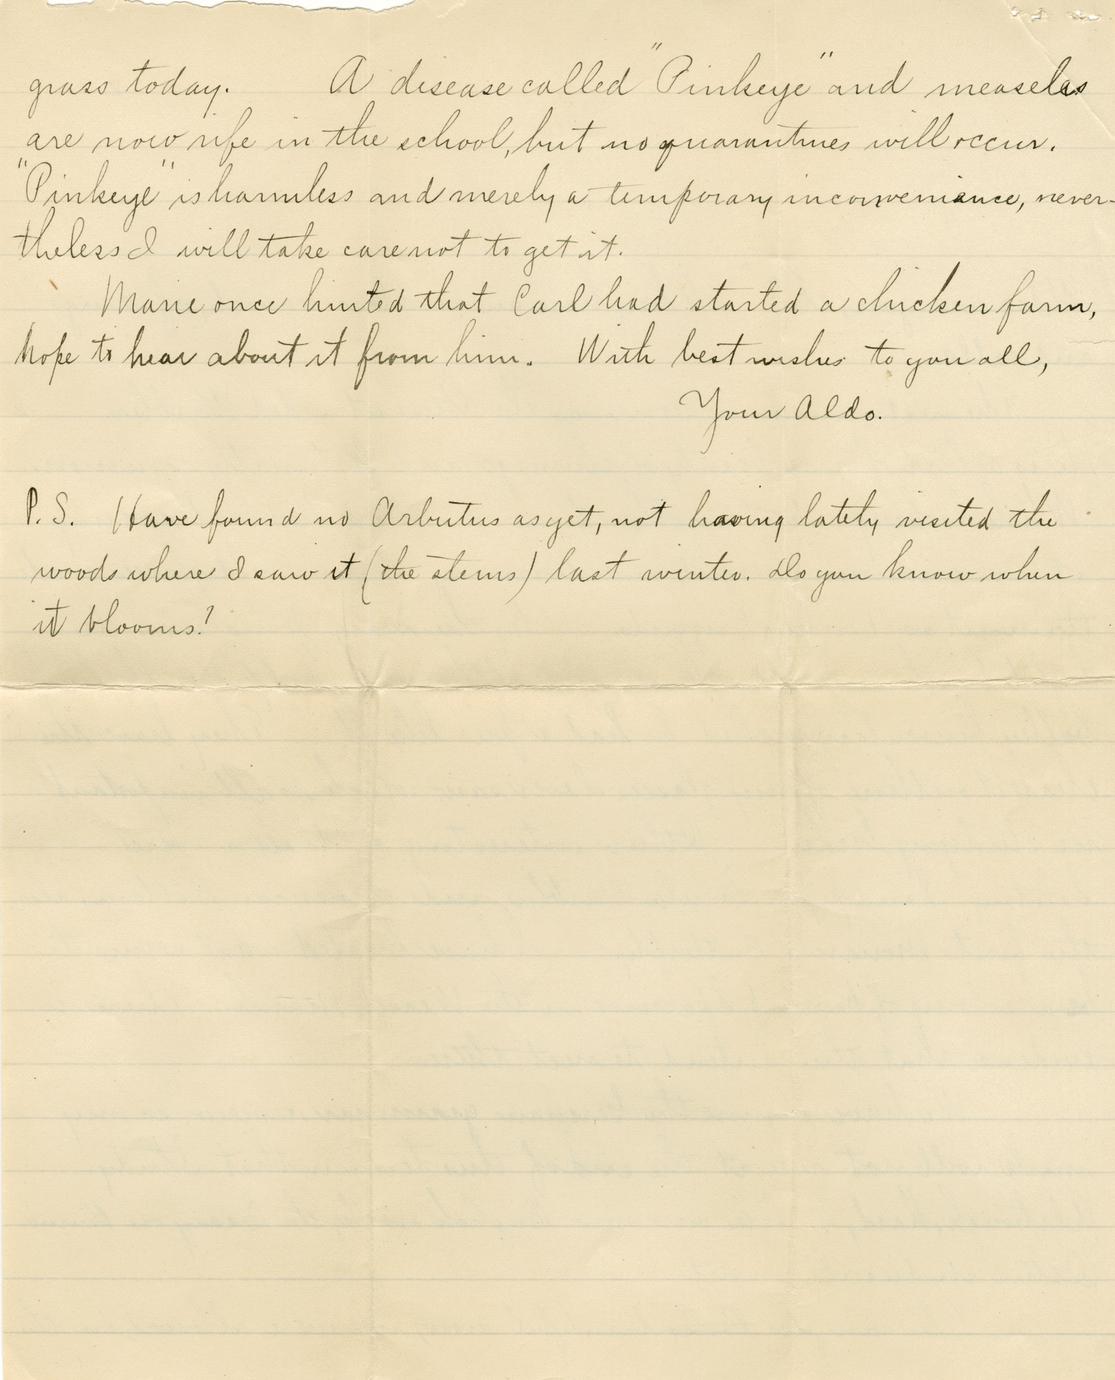 grass today. A disease called "Pinkeye" and measeles
are now rife in the school, but no quarantines will occur.
"Pinkeye" is harmless and merely a temporary inconveniance, never-
theless I will take care not to get it.
Marie once hinted that Carl had started a chicken farm,
hope to hear about it from him. With best wishes to you all,
Your Aldo.
P.S. Have found no Arbutus as yet, not having lately visited the
woods where I saw it (the stems) last winter. Do you know when
it blooms?